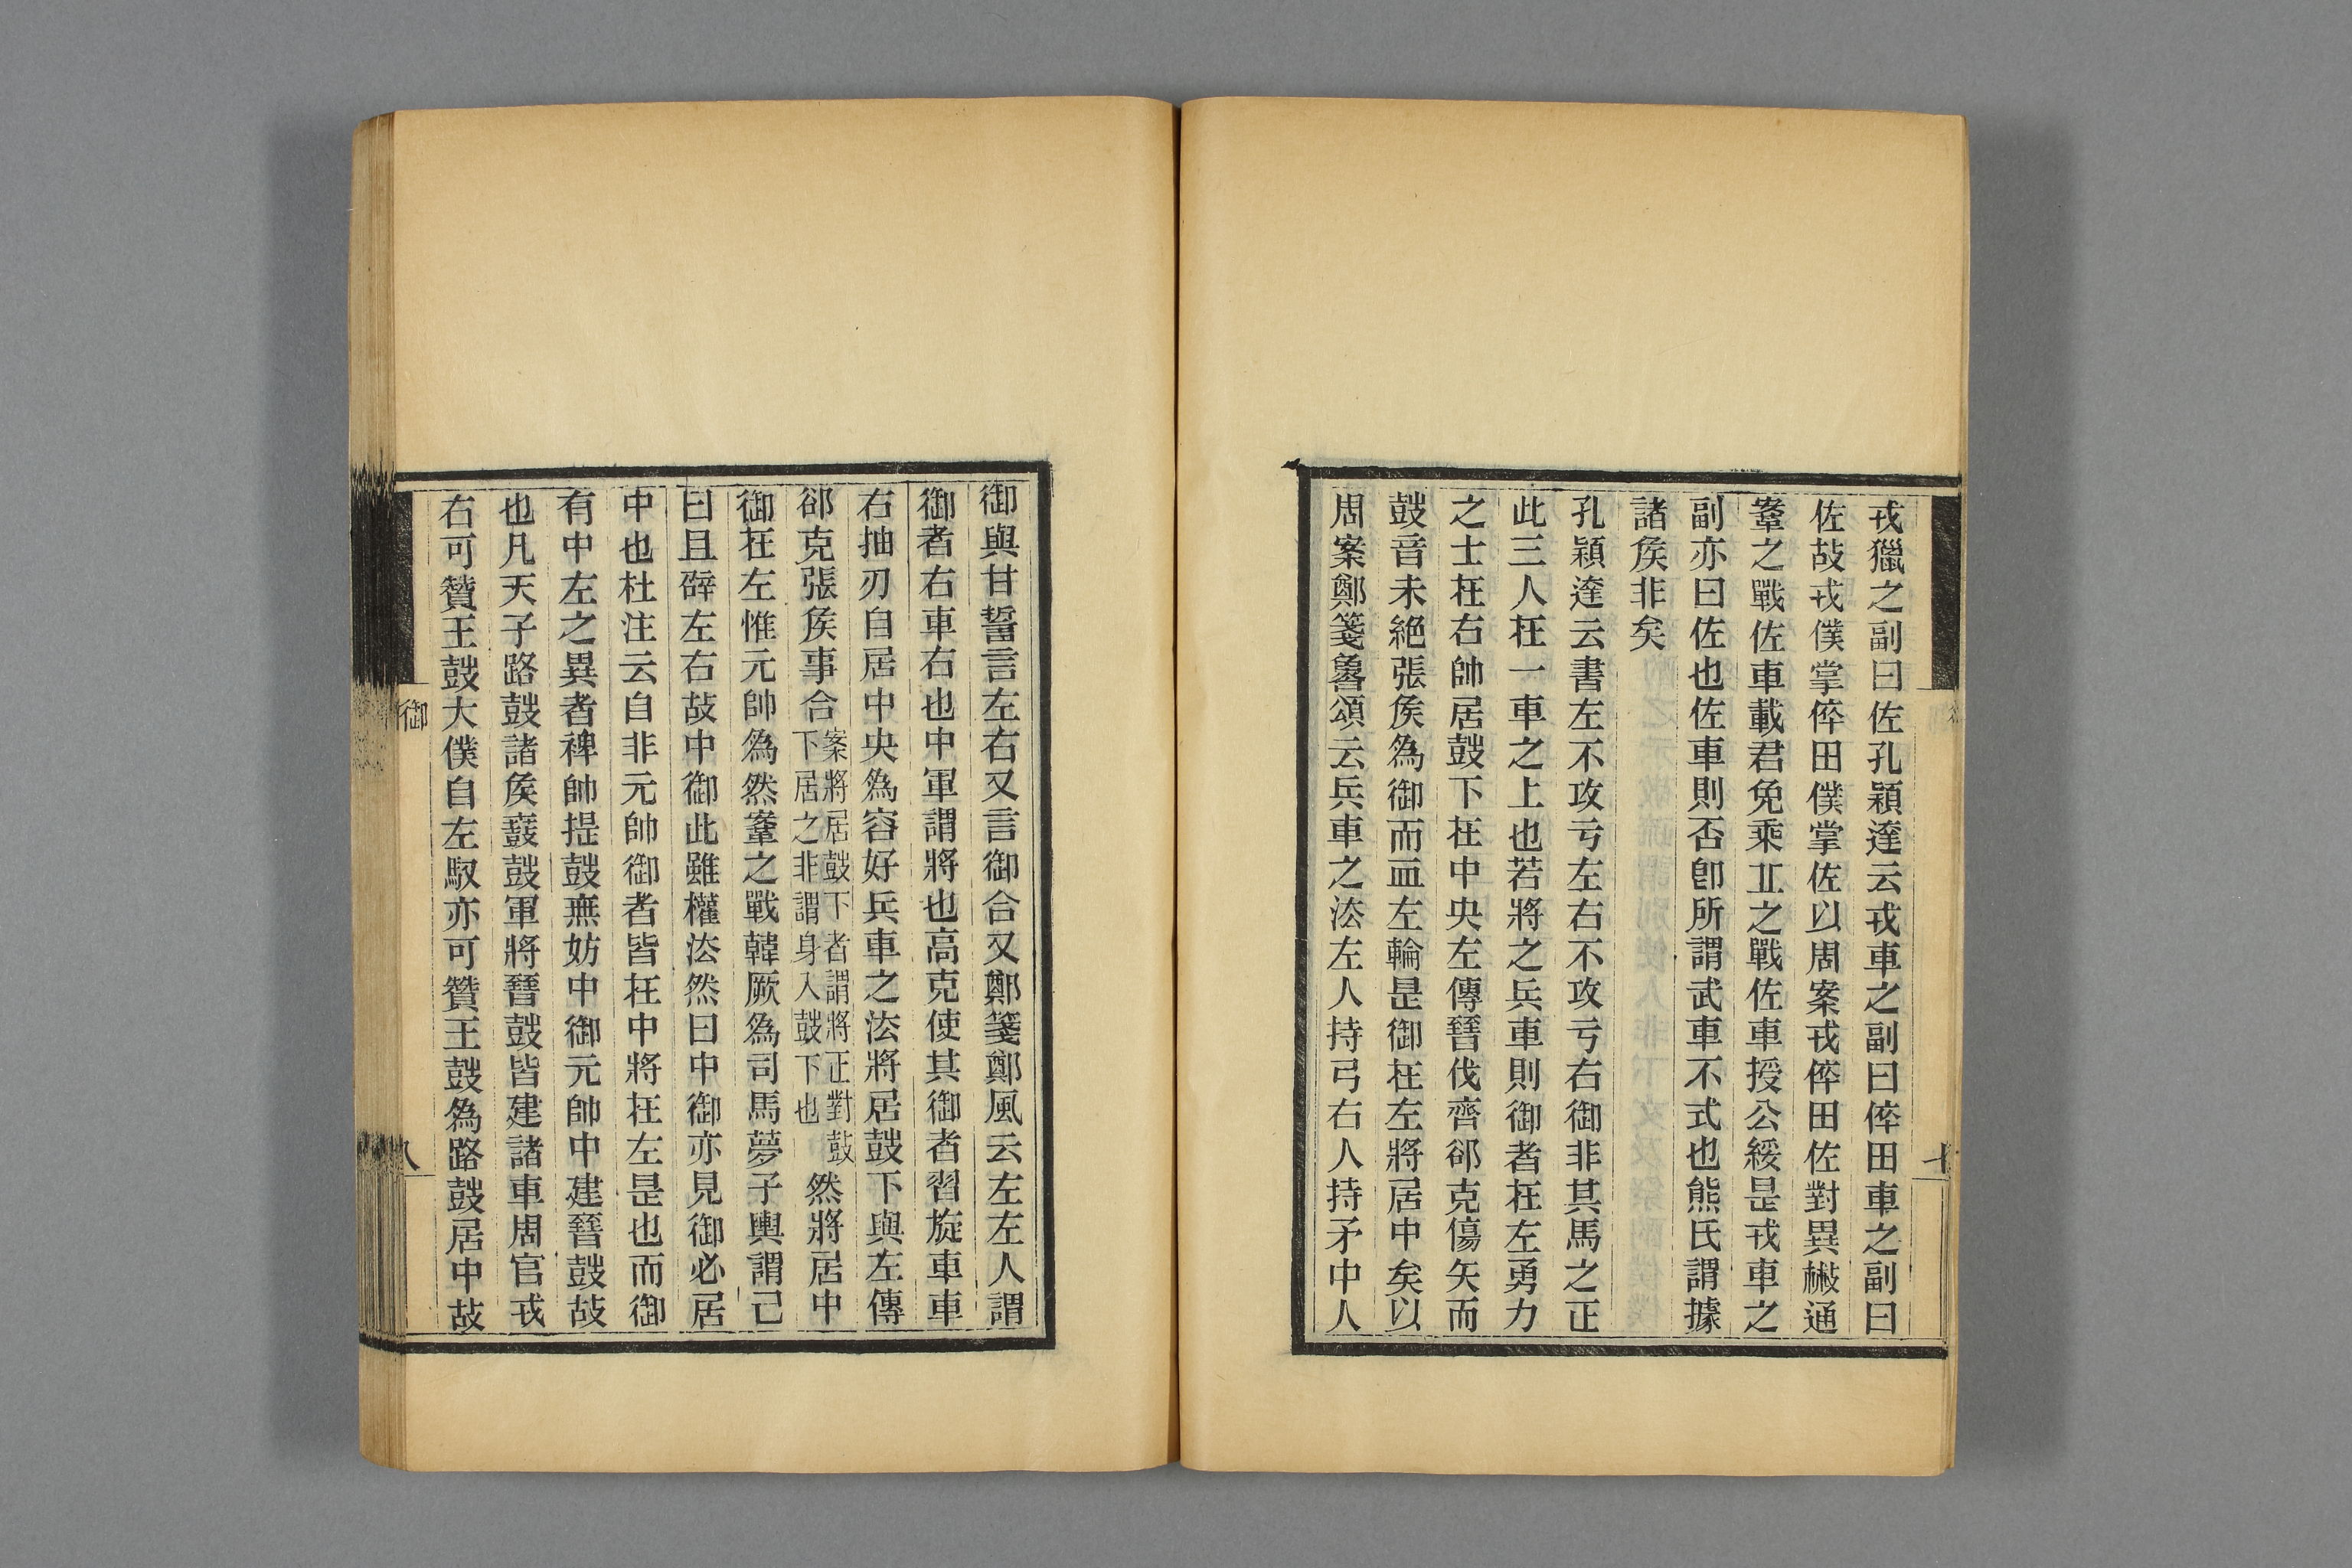 戎獵之副曰佐孔穎達云戎車之副曰倅田車之副曰
佐故戎僕掌倅田僕掌佐以周案戎倅田佐對異㪔通
鞌之戰佐車載君免乘丠之戰佐車授公綏是戎車之
副亦曰佐也佐車則否卽所謂武車不式也熊氏謂據
諸矦非矣
孔穎達云書左不攻亏左右不攻亏右御非其馬之正
此三人在一車之上也若將之兵車則御者在左勇力
之士在右帥居鼓下在中央左傳晉伐齊郤克傷矢而
鼓音未絕張矦爲御而血左輪是御在左將居中矣以
周案鄭箋魯頌云兵車之法左人持弓右人持矛中人
御與甘誓言左右又言御合又鄭箋鄭風云左左人謂
御者右車右也中軍謂將也高克使其御者習旋車車
右抽刃自居中央爲容好兵車之法將居鼓下與左傳
郤克張矦事合案將居鼓下者謂將正對鼓下居之非謂身入鼓下也然將居中
御在左惟元帥爲然鞌之戰韓厥爲司馬夢子輿謂己
曰且辟左右故中御此雖權法然曰中御亦見御必居
中也杜注云自非元帥御者皆在中將在左是也而御
有中左之異者裨帥提鼓無妨中御元帥中建晉鼓故
也凡天子路鼓諸矦鼖鼓軍將晉鼓皆建諸車周官戎
右可贊王鼓大僕自左馭亦可贊王鼓爲路鼓居中故
御
八